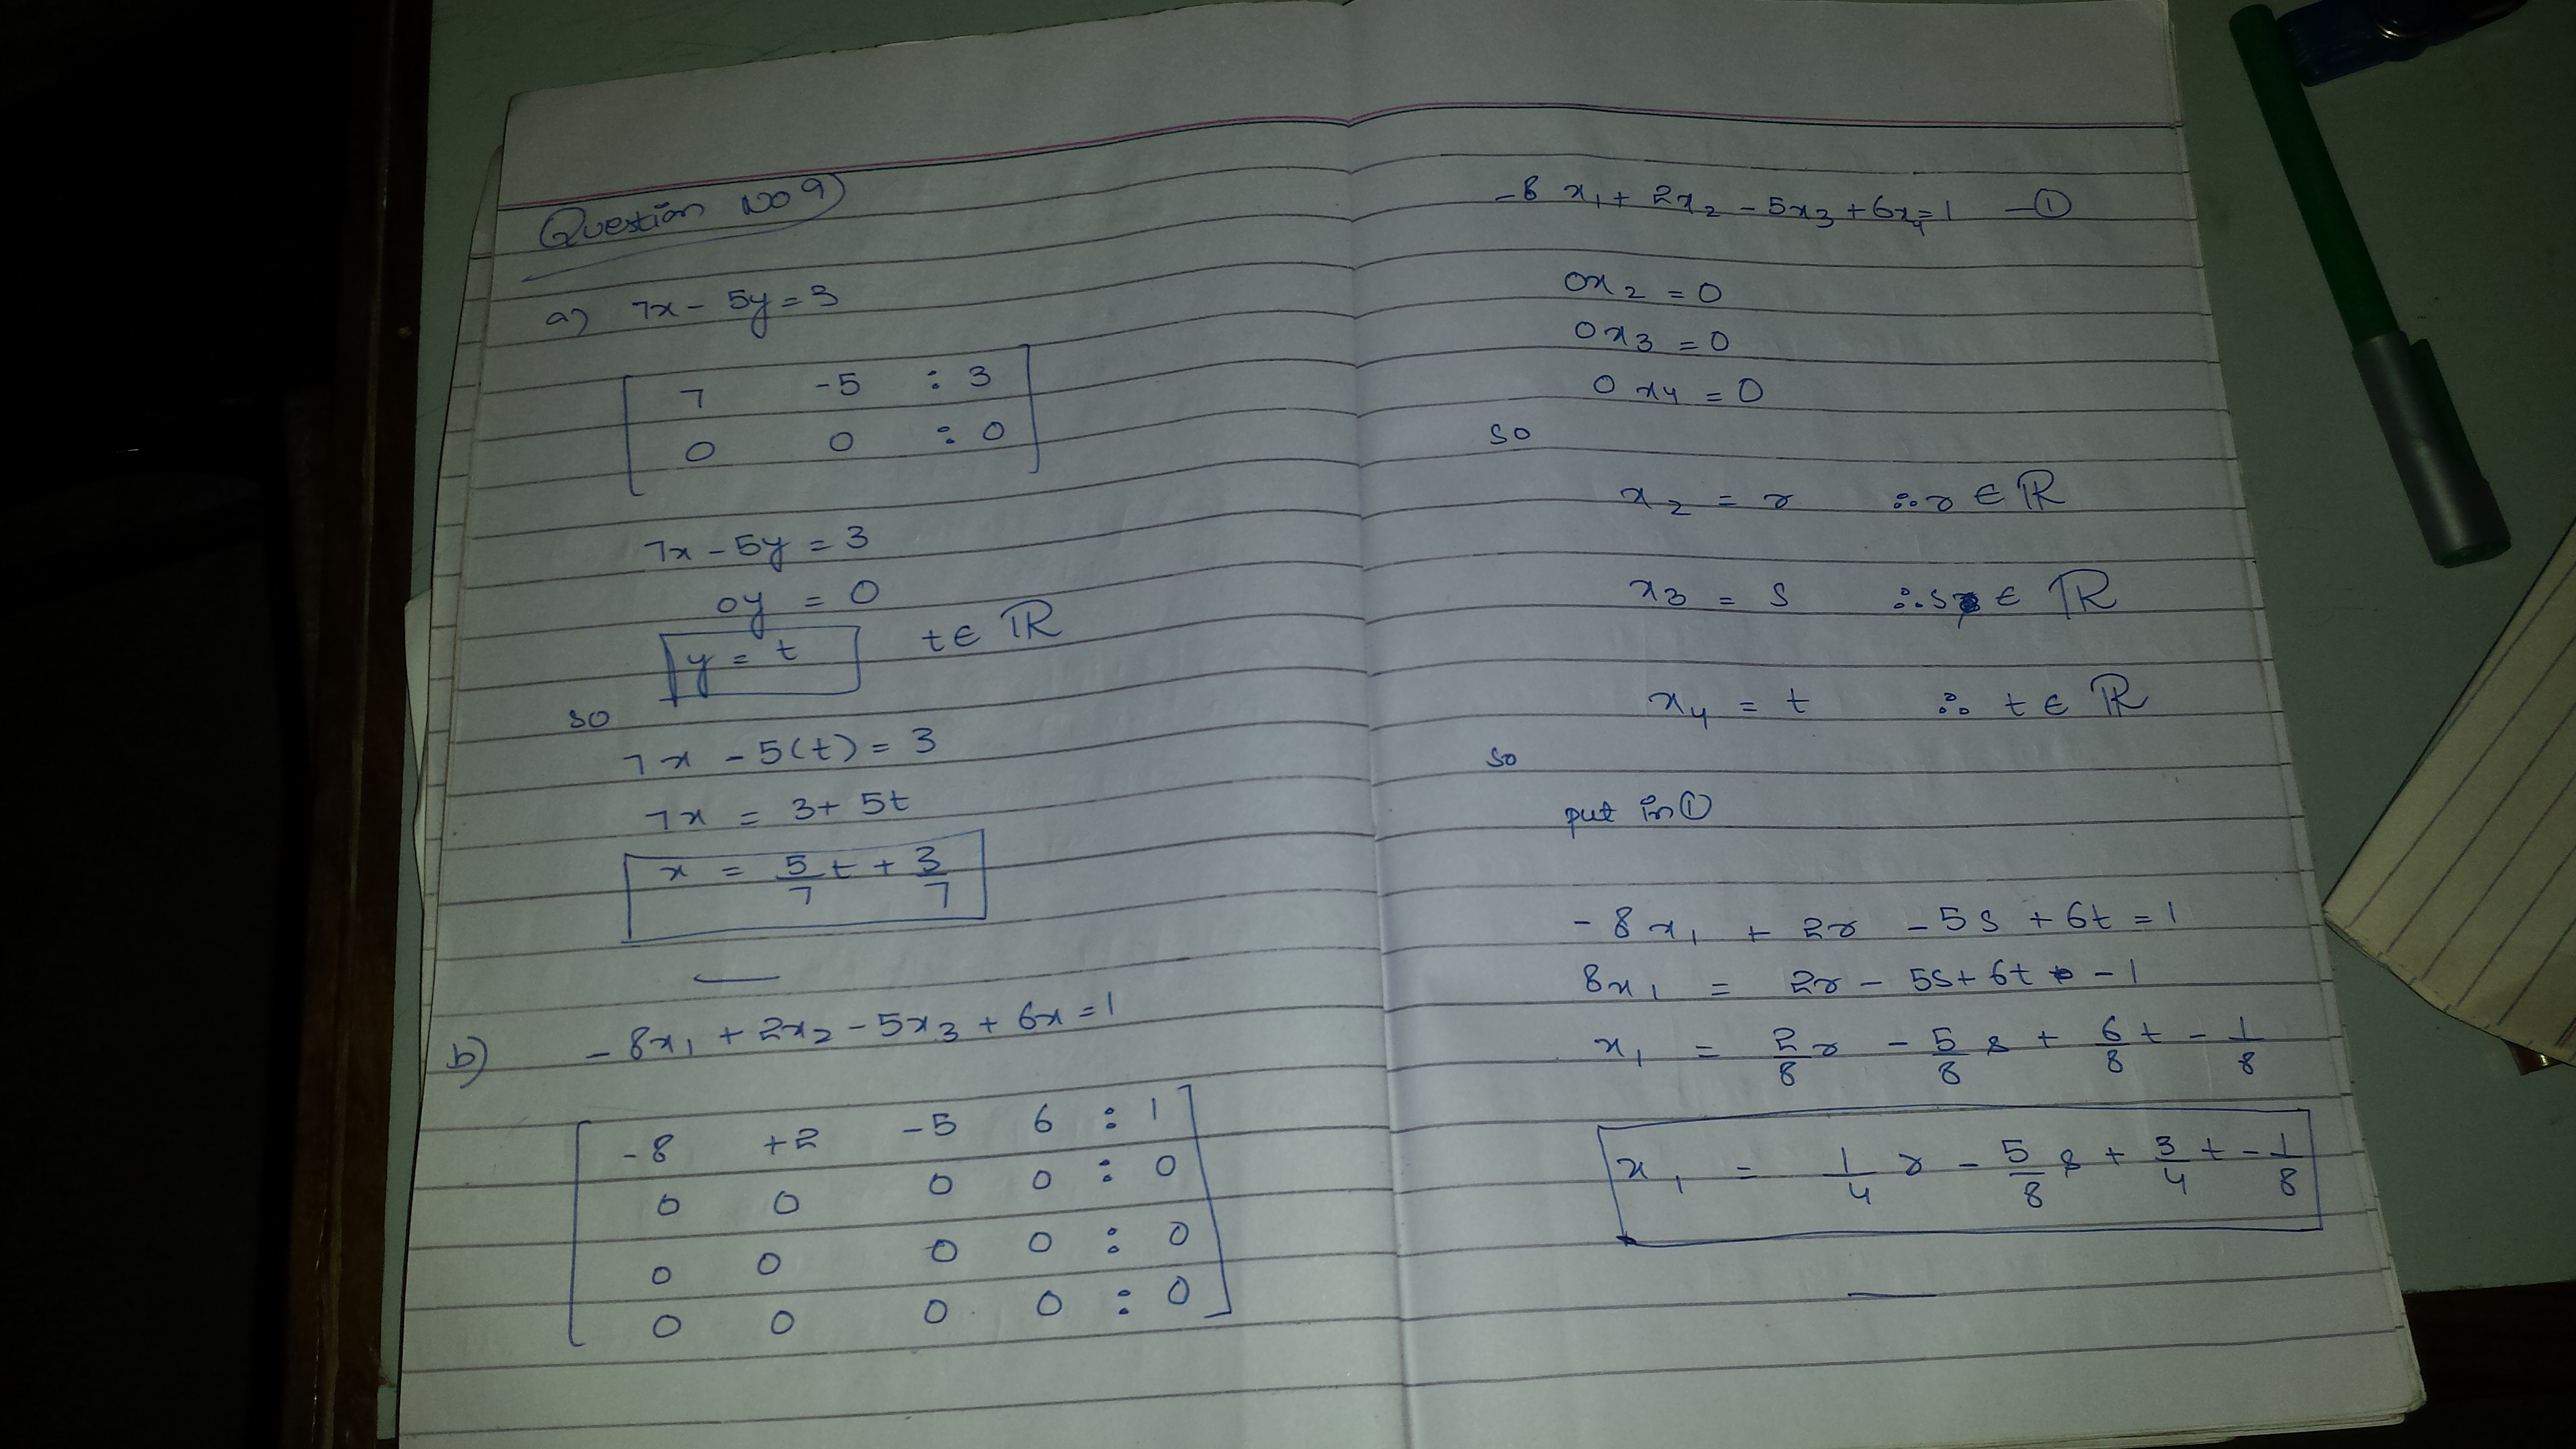 Question NO 9
a) 7x - 5y = 3
7 -5 : 3
0 0 : 0
7x - 5y = 3
0y = 0
y = t t ∈ ℝ
so
7x - 5(t) = 3
7x = 3 + 5t
x = 5/7 t + 3/7
b) -8x₁ + 2x₂ - 5x₃ + 6x = 1
-8 +2 -5 6 : 1
0 0 0 0 : 0
0 0 0 0 : 0
0 0 0 0 : 0
-8 x₁ + 2x₂ - 5x₃ + 6x₄ = 1 - ①
0x₂ = 0
0x₃ = 0
0x₄ = 0
so
x₂ = r ∴ r ∈ ℝ
x₃ = s ∴ s ∈ ℝ
x₄ = t ∴ t ∈ ℝ
so
put in ①
-8x₁ + 2r - 5s + 6t = 1
8x₁ = 2r - 5s + 6t - 1
x₁ = 2/8 r - 5/8 s + 6/8 t - 1/8
x₁ = 1/4 r - 5/8 s + 3/4 t - 1/8